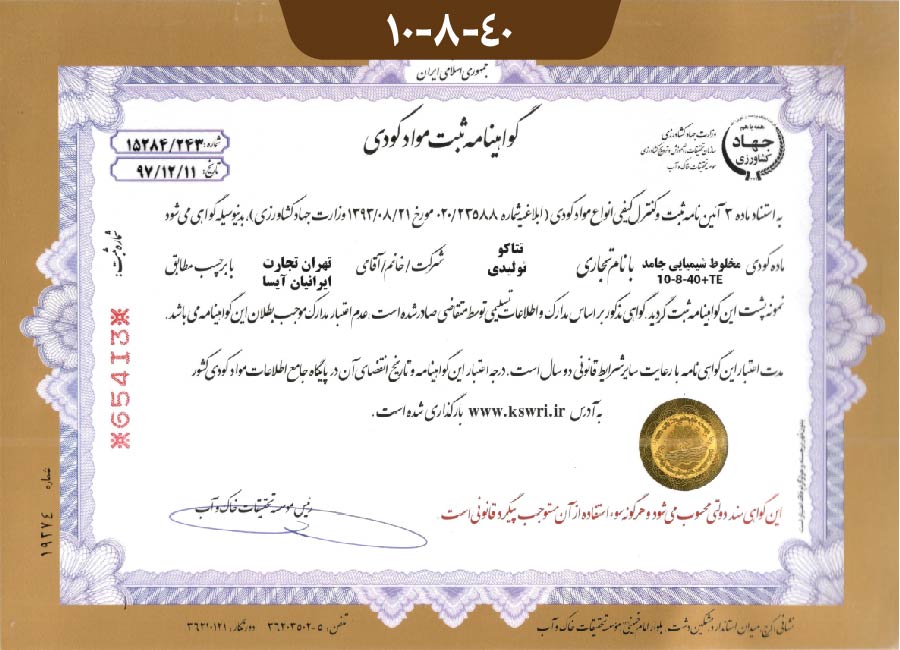 ۱۰-۸-۴۰
جمهوری اسلامی ایران
همه با هم
جهاد
کشاورزی
وزارت جهاد کشاورزی
سازمان تحقیقات، آموزش و ترویج کشاورزی
موسسه تحقیقات خاک و آب
گواهینامه ثبت مواد کودی
شماره: ۱۵۲۸۴/۲۴۳
تاریخ: ۹۷/۱۲/۱۱
به استناد ماده ۳ آئین نامه ثبت و کنترل کیفی انواع مواد کودی ( ابلاغیه شماره ۰۲۰/۲۳۵۸۸ مورخ ۱۳۹۳/۰۸/۲۱ وزارت جهاد کشاورزی )، بدینوسیله گواهی می شود
ماده کودی مخلوط شیمیایی جامد 10-8-40+TE با نام تجاری نتاکو تولیدی شرکت / خانم / آقای تهران تجارت ایرانیان آیسا با برچسب مطابق
نمونه پشت این گواهینامه ثبت گردید. گواهی مذکور بر اساس مدارک و اطلاعات تسلیمی توسط متقاضی صادر شده است. عدم اعتبار مدارک موجب بطلان این گواهینامه می باشد.
مدت اعتبار این گواهی نامه با رعایت سایر شرایط قانونی دو سال است. درجه اعتبار این گواهینامه و تاریخ انقضای آن در پایگاه جامع اطلاعات مواد کودی کشور
به آدرس www.kswri.ir بارگذاری شده است.
شماره ثبت:
※65413※
رئیس موسسه تحقیقات خاک و آب
این گواهی سند دولتی محسوب می شود و هرگونه سوء استفاده از آن مستوجب پیگرد قانونی است
شماره ۱۹۲۷۴
نشانی: کرج، میدان استاندارد، مشکین دشت، بلوار امام خمینی، مؤسسه تحقیقات خاک و آب
تلفن: ۵-۳۶۲۰۳۵۰۲ دورنگار: ۳۶۲۱۰۱۲۱